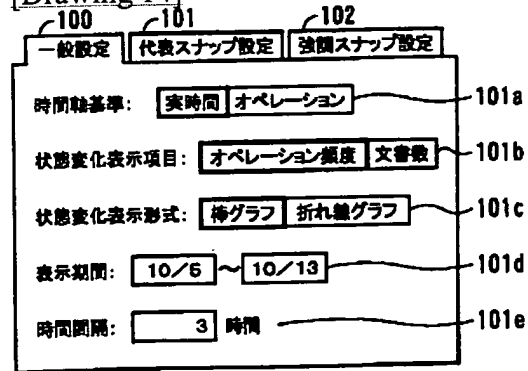 [Drawing 14]
100 101 102
一般設定 代表スナップ設定 強調スナップ設定
時間軸基準: 実時間 オペレーション 101a
状態変化表示項目: オペレーション頻度 文書数 101b
状態変化表示形式: 棒グラフ 折れ線グラフ 101c
表示期間: 10/5 ~ 10/13 101d
時間間隔: 3 時間 101e